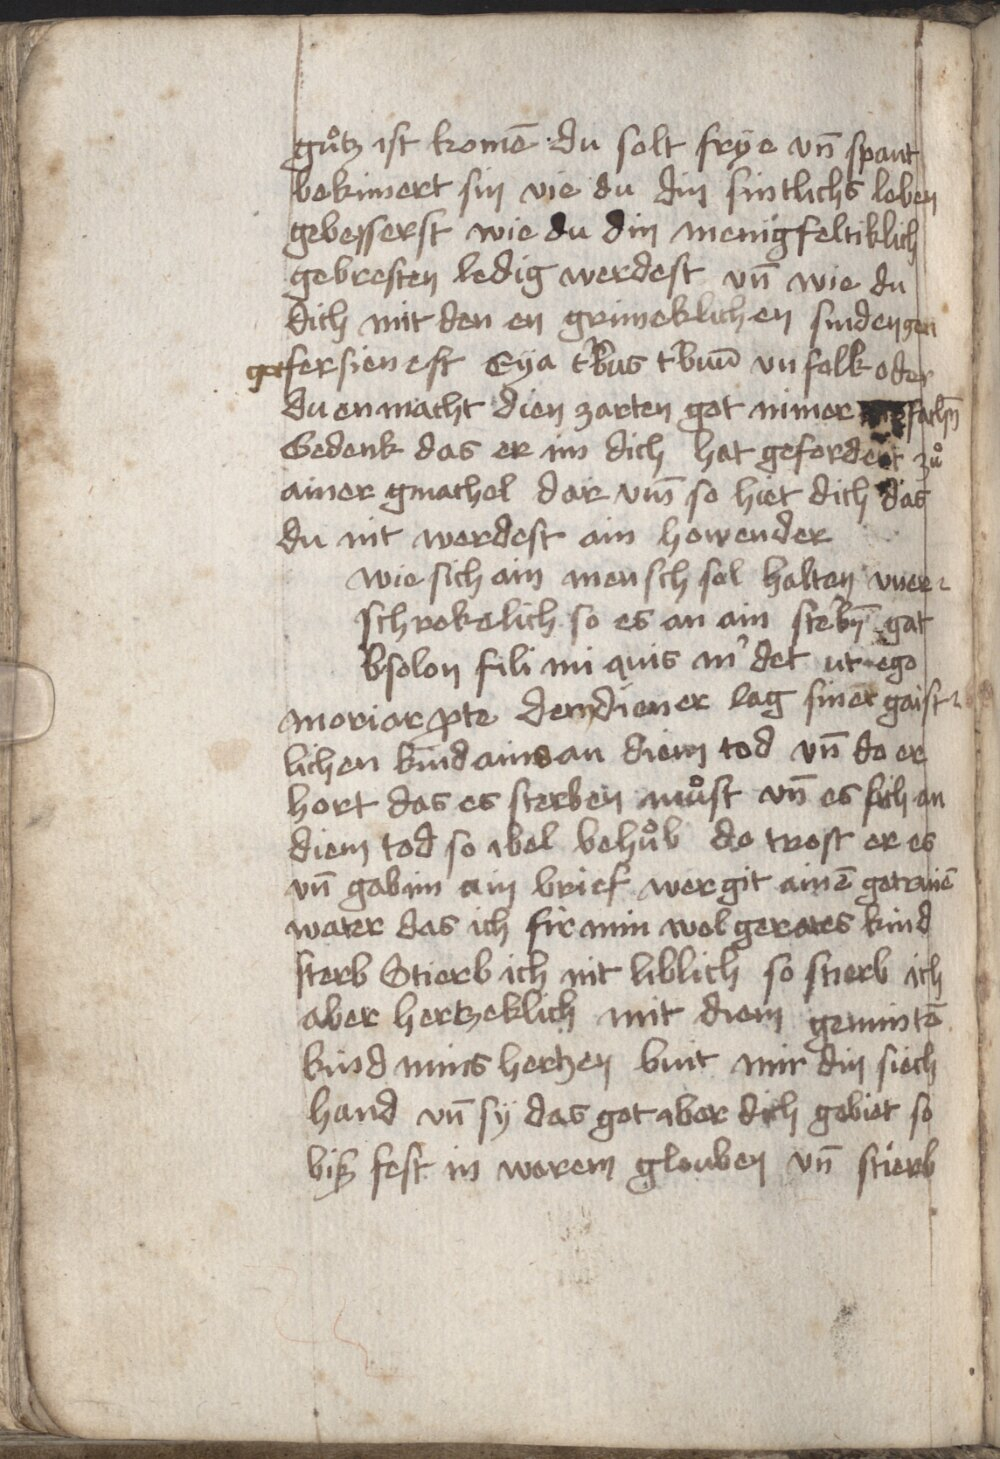 guͦtz ist komē du solt frye vn̄ spaut
bekimert sin wie du din sintlichs leben
gebesserst wie du din menigfeltiklich
gebresten ledig werdest vn̄ wie du
dich mit den en grimeklichen sinden gen
got fersienest Eya tͬbus tͬbum vn folk oder
du en macht dien zarten got nimer
Gedenk das er im dich hat gefordert zuͦ
ainer gmachel dar vm̄ so hiet dich das
du nit werdest ain howender
wie sich ain mensch sol halten vner-
schrokelich so es an ain sterbn̄ gat
bsolon fili mi quis m' det ut ego
moriar pte dem diener lag siner gaist-
lichen kind ains an diem tod vn̄ do er
hort das es sterben muͦst vn̄ es sich an
diem tod so vbel behuͦb do trost er es
vn̄ gab im ain brief wer git ainē getruwē
water das ich fir min wol gerates kind
sterb Stierb ich nit liblich so stierb ich
aber hertzeklich mit diem gemintē
kind mins hertzen buit mir din siech
hand vn̄ sy das got vber dich gebiet so
bisz fest in worem glouben vn̄ stierb